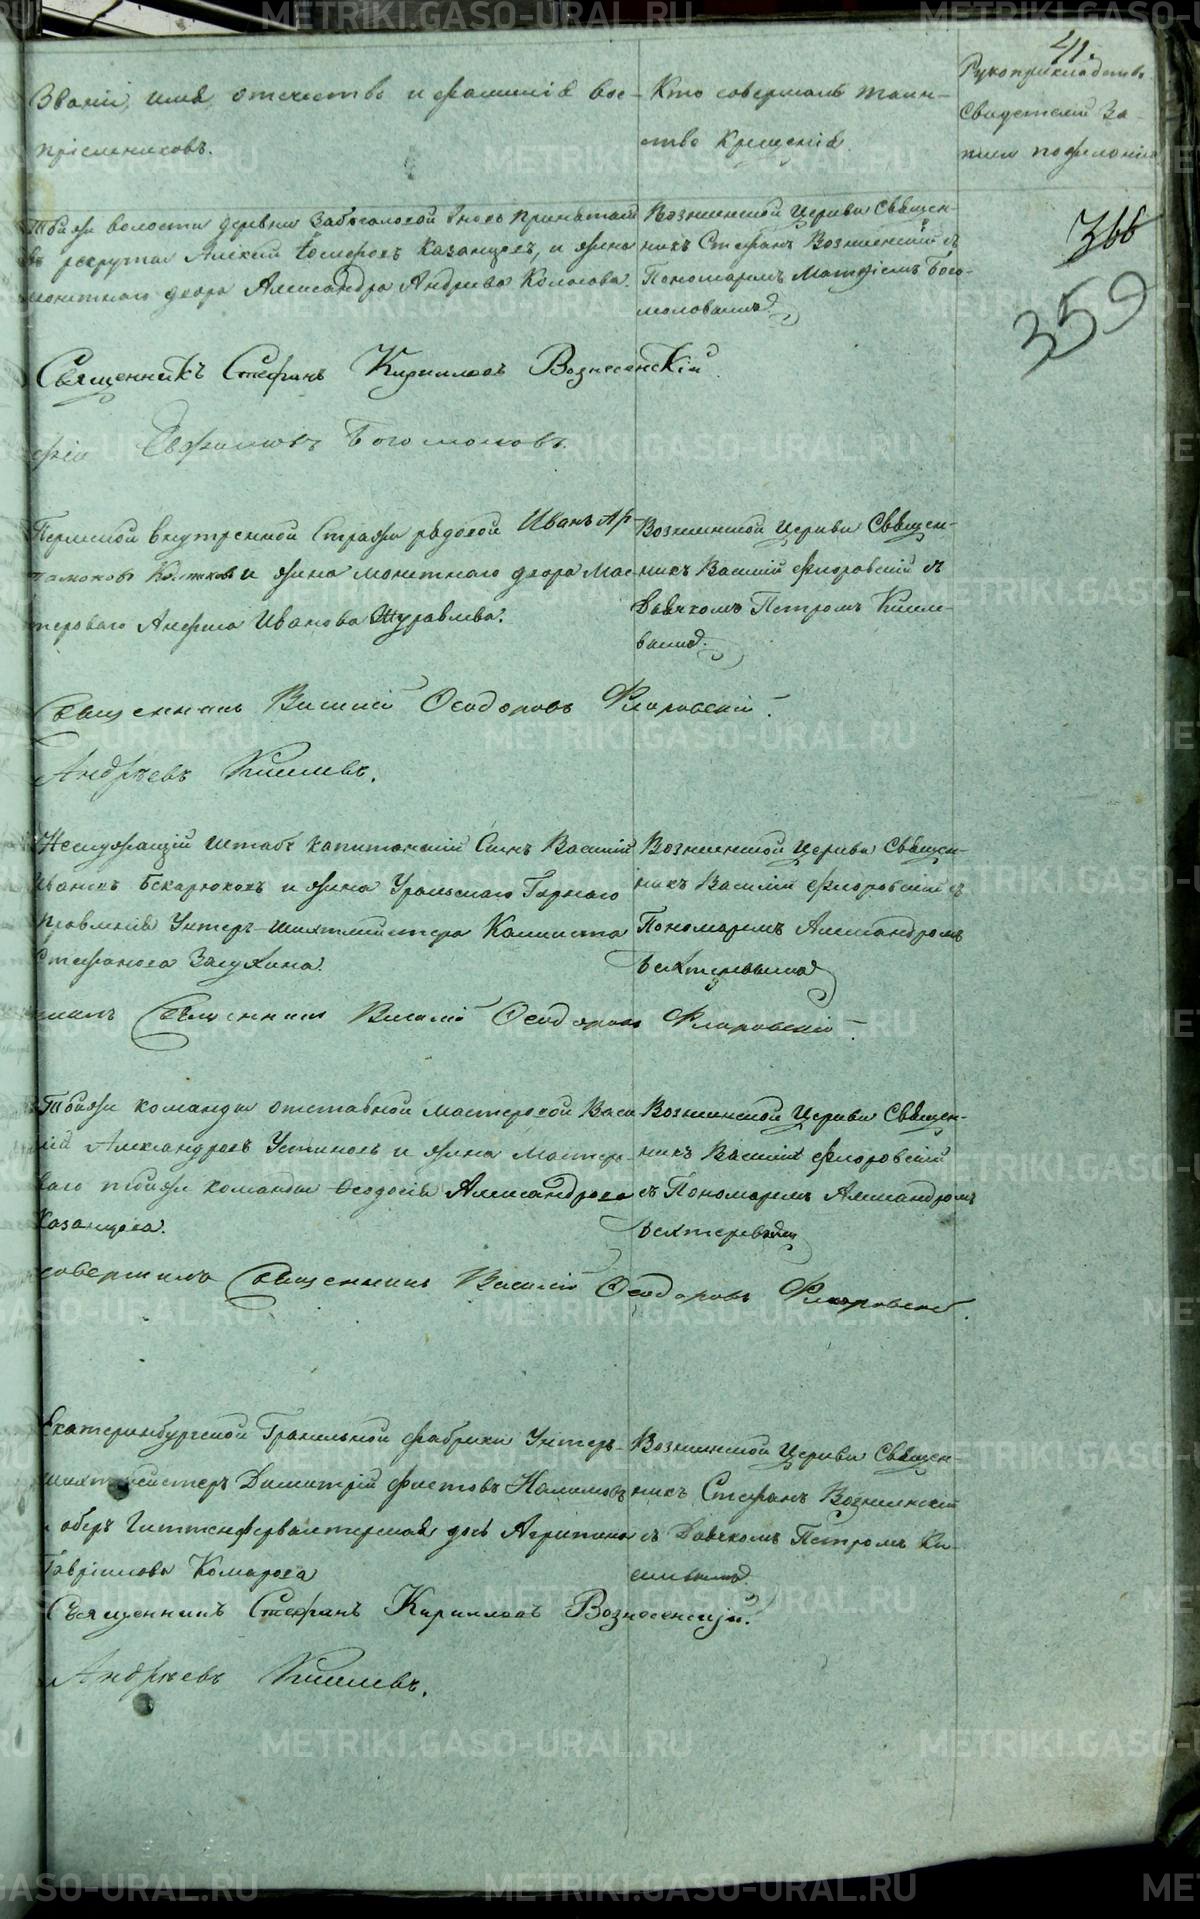 41.
Званіе, имя, отчество и фамилія вос-
пріемниковъ.
Кто совершалъ таин-
ство Крещенія
Рукоприкладство
Свидетелей За-
писи по желанію
366
359
волости деревни вновь принятый
въ рекруты Алексѣй Казанцевъ, и жена
монетнаго двора Александра Андреева Колосова.
Вознесенской Церкви Священ-
никъ Стефанъ Вознесенскій съ
Пономаремъ Матфіемъ Бого-
моловымъ
Священникъ Стефанъ Кирилловъ Вознесенскій
фій Евфимовъ Богомоловъ.
Пермской внутренной Стражи рядовой Иванъ Ар-
и жена монетнаго двора Мас-
тероваго Анфиса Иванова Журавлева.
Вознесенской Церкви Священ-
никъ Василій Флоровскій съ
Дьячкомъ Петромъ Кисле-
вымъ.
Священникъ Василій Ѳеодоровъ Флоровскій.
Андреевъ Киселевъ.
Неслужащій Штабсъ Капитанскій Сынъ Василій
Ивановъ Бекарюковъ и жена Уральскаго Горнаго
Правленія Унтеръ-шихтмейстера Калиста
Стефанова Засухина.
Вознесенской Церкви Священ-
никъ Василій Флоровскій съ
Пономаремъ Александромъ
Бехтеревымъ
Священникъ Василій Ѳеодоровъ Флоровскій.
команды отставной мастеровой Васи
лій Александровъ Устиновъ и жена Мастеро-
ваго команды Ѳеодосія Александрова
Казанцева.
Вознесенской Церкви Священ-
никъ Василій Флоровскій
съ Пономаремъ Александромъ
Бехтеревымъ
совершилъ Священникъ Василій Ѳеодоровъ Флоровскій.
Екатеринбургской Гранильной фабрики Унтеръ-
шихтмейстеръ Димитрій Фистовъ Налимовъ
и оберъ Гиттенфервалтерская дочь Агрипина
Гавріилова Комарова
Вознесенской Церкви Священ-
никъ Стефанъ Вознесенскій
съ Дьячкомъ Петромъ Ки-
селевымъ.
Священникъ Стефанъ Кирилловъ Вознесенскій.
Андреевъ Киселевъ.
METRIKI.GASO-URAL.RU